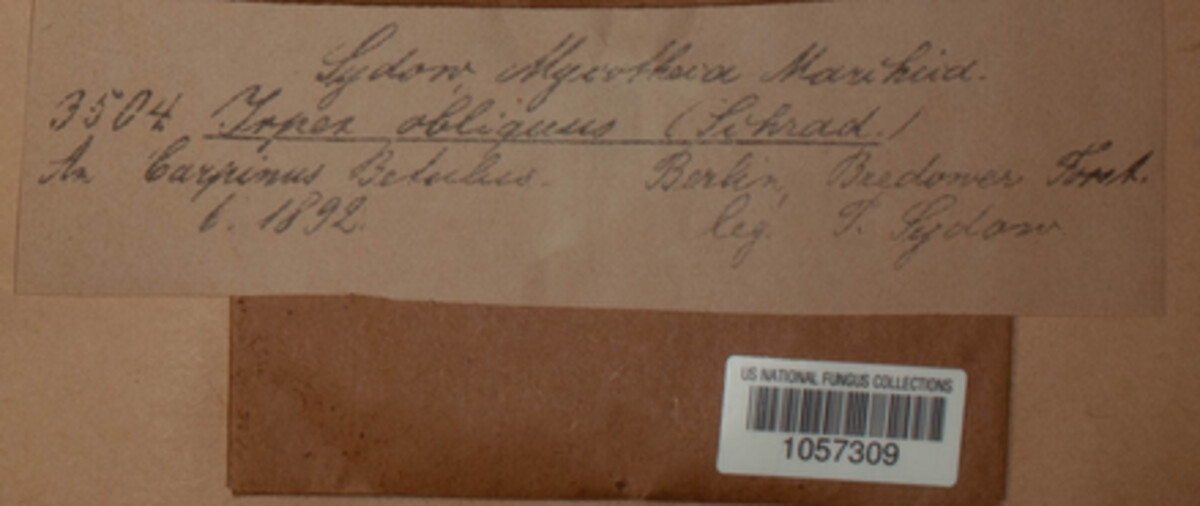 Sydow, Mycotheca Marchica.
3504 Irpex obliquus (Schrad.)
An Carpinus Betulus. Berlin, Bredower Forst.
6. 1892. leg. P. Sydow
US NATIONAL FUNGUS COLLECTIONS
1057309